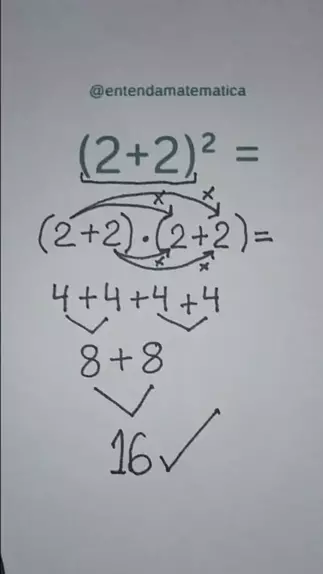 @entendamatematica
(2+2)² =
(2+2)·(2+2)=
x x
x x
4+4+4+4
8+8
16✓